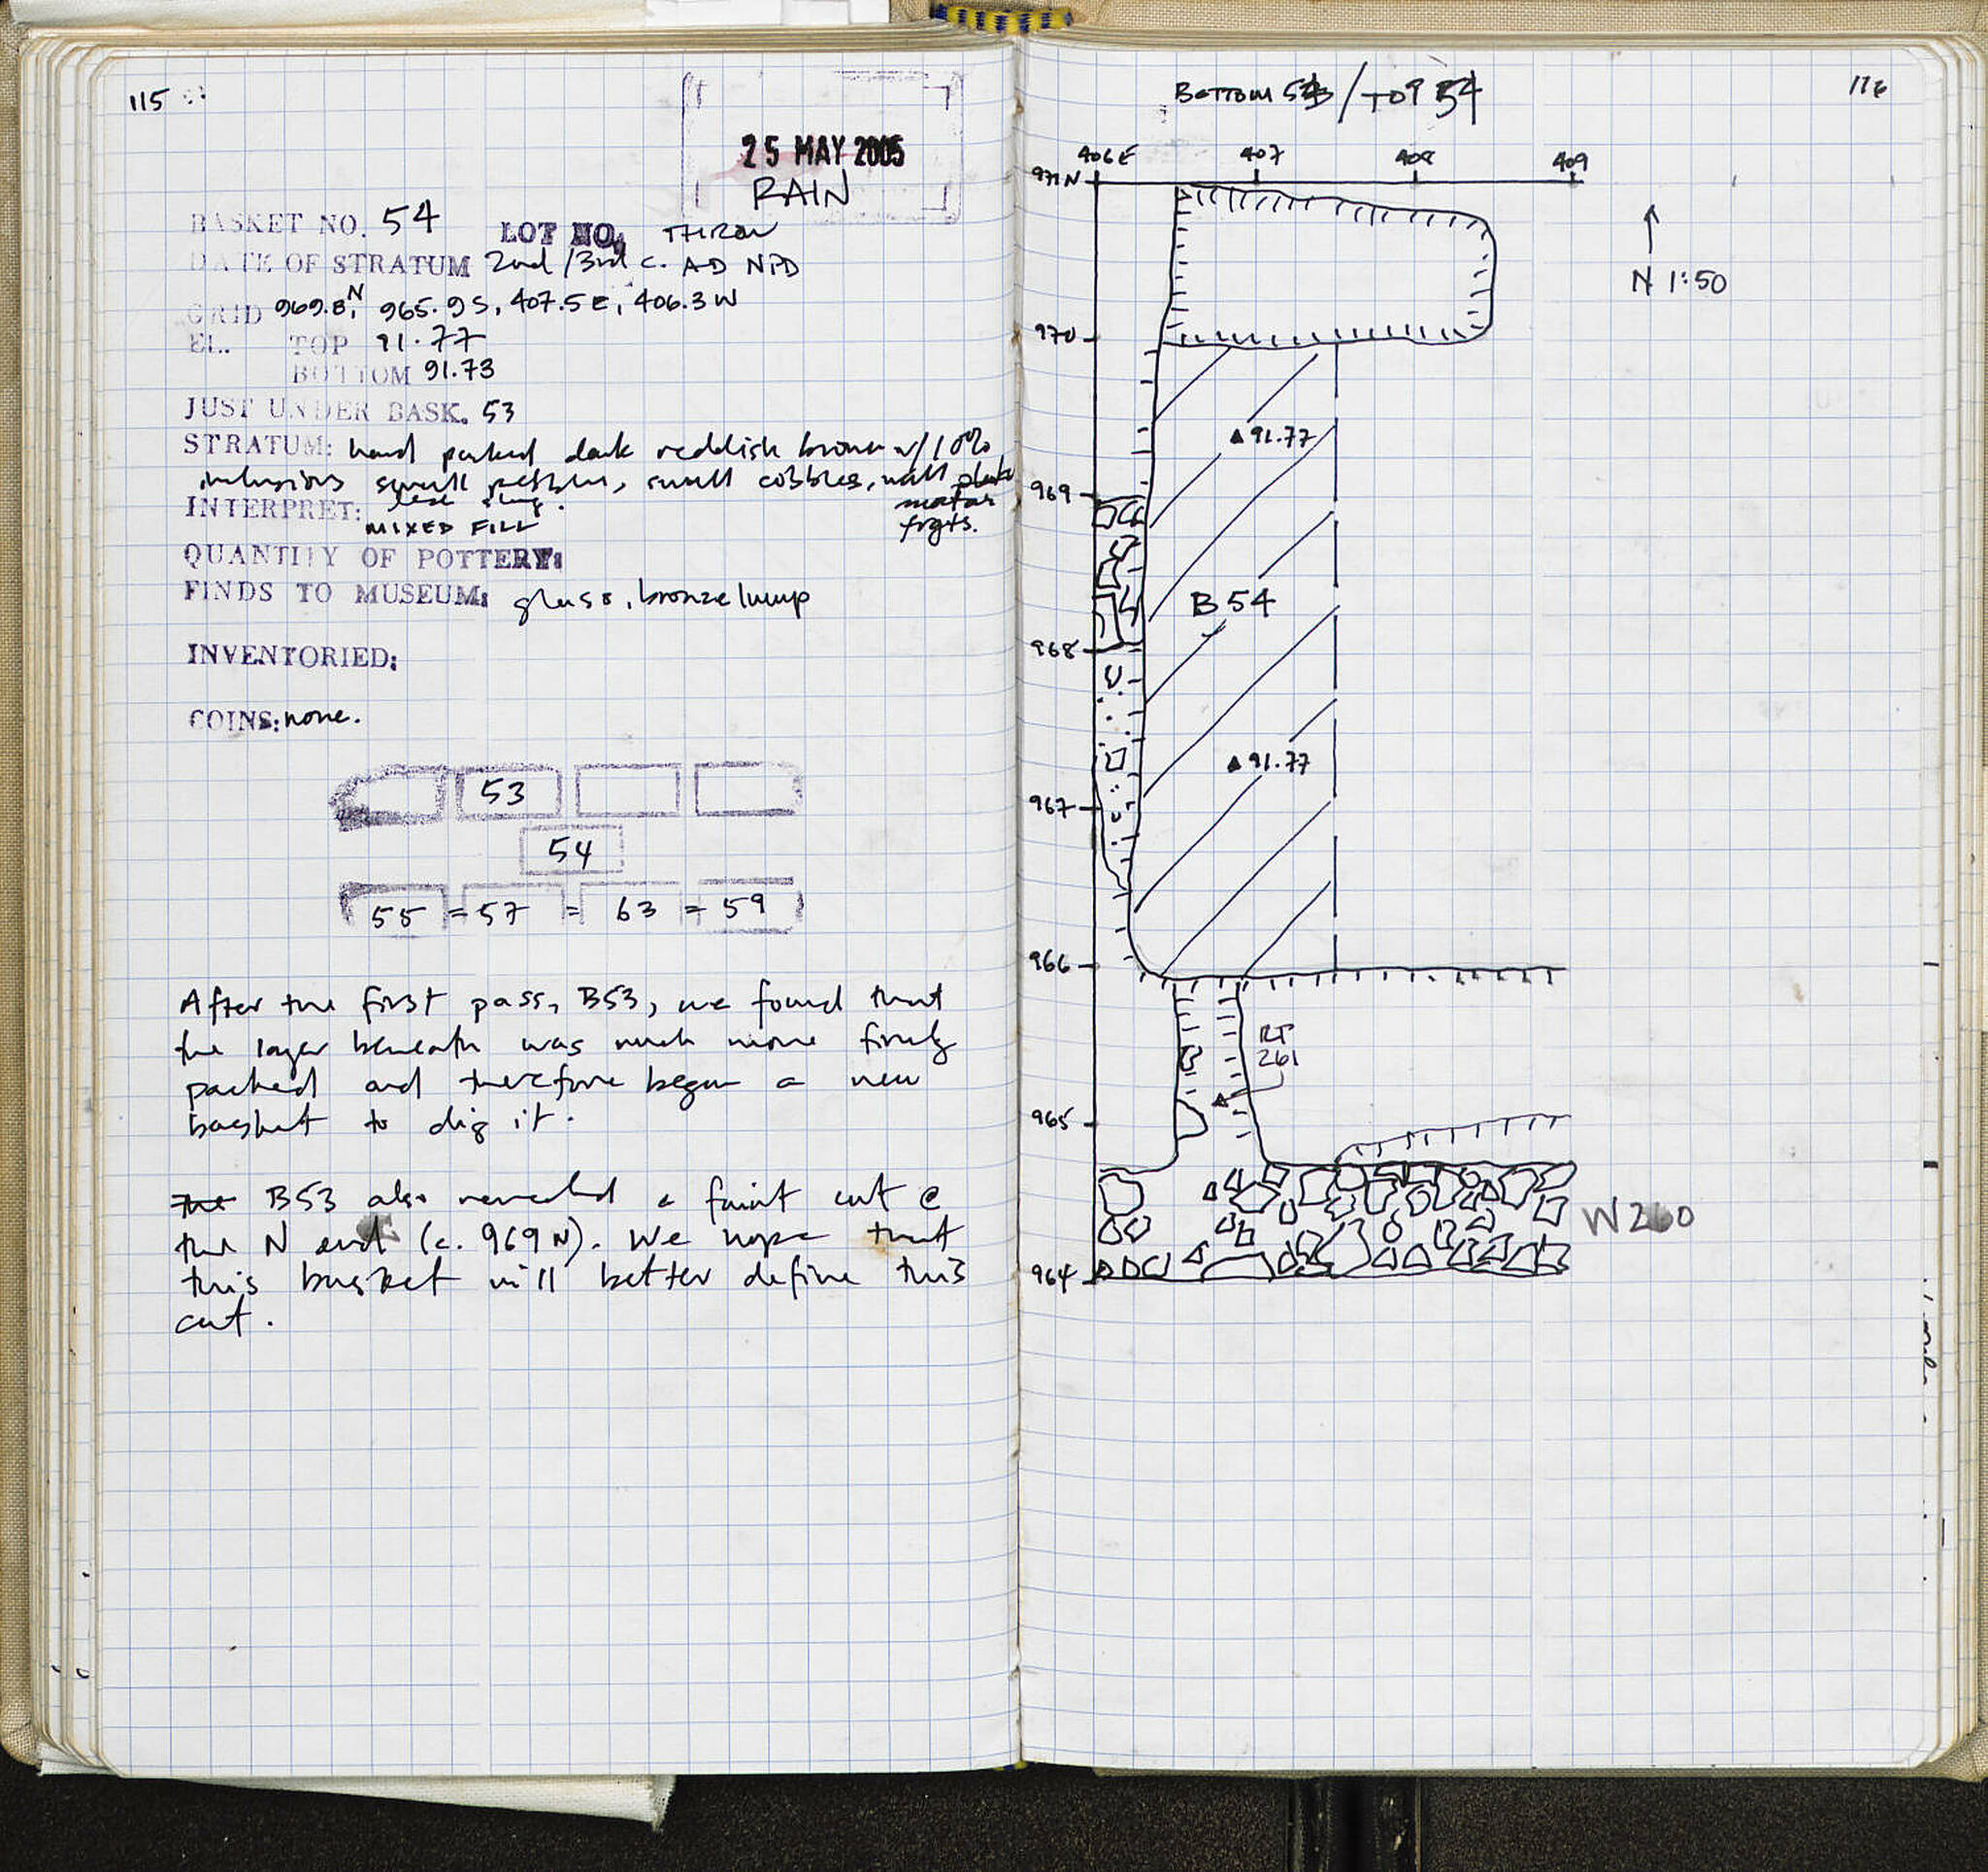 115
25 MAY 2005
RAIN
BASKET NO. 54 LOT NO. THROW
DATE OF STRATUM 2nd/3rd c. AD NPD
GRID 969.8N, 965.9S, 407.5E, 406.3W
EL. TOP 91.77
BOTTOM 91.73
JUST UNDER BASK. 53
STRATUM: hard packed dark reddish brown w/10%
inclusions small pebbles, small cobbles, wall
mortar
frgts.
INTERPRET:
MIXED FILL
QUANTITY OF POTTERY:
FINDS TO MUSEUM: glass, bronze lump
INVENTORIED:
COINS: none.
53
54
55 = 57 = 63 = 59
After the first pass, B53, we found that
the layer beneath was much more firmly
packed and therefore began a new
basket to dig it.
the B53 also revealed a faint cut @
the N end (c. 969 N). We hope that
this basket will better define this
cut.
116
BOTTOM 53 / TOP 54
406E 407 408 409
971N
N 1:50
970
▲91.77
969
B 54
968
▲91.77
967
966
RT
261
965
W260
964